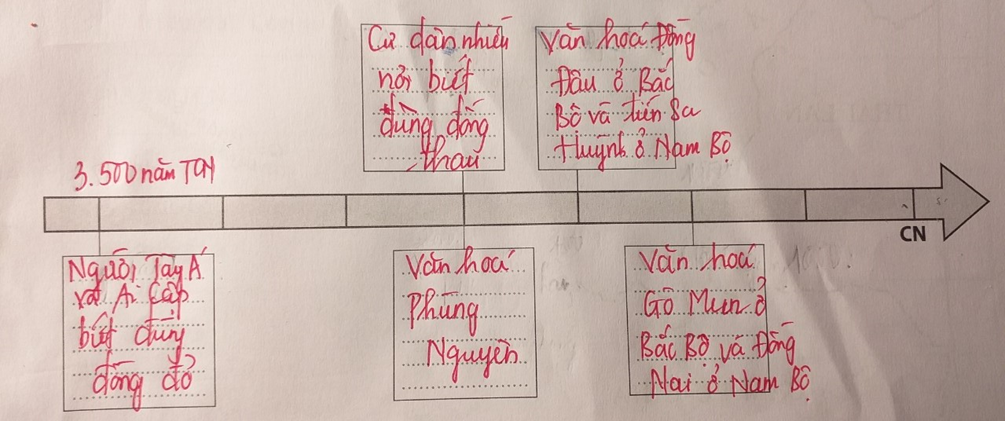 Cư dân nhiều
nơi biết
dùng đồng
thau
Văn hoá Đồng
Đâu ở Bắc
Bộ và tiến Sa
Huỳnh ở Nam Bộ
3.500 năm TCN
CN
Người Tây Á
và Ai Cập
biết dùng
đồng đỏ
Văn hoá
Phùng
Nguyên
Văn hoá
Gò Mun ở
Bắc Bộ và Đồng
Nai ở Nam Bộ